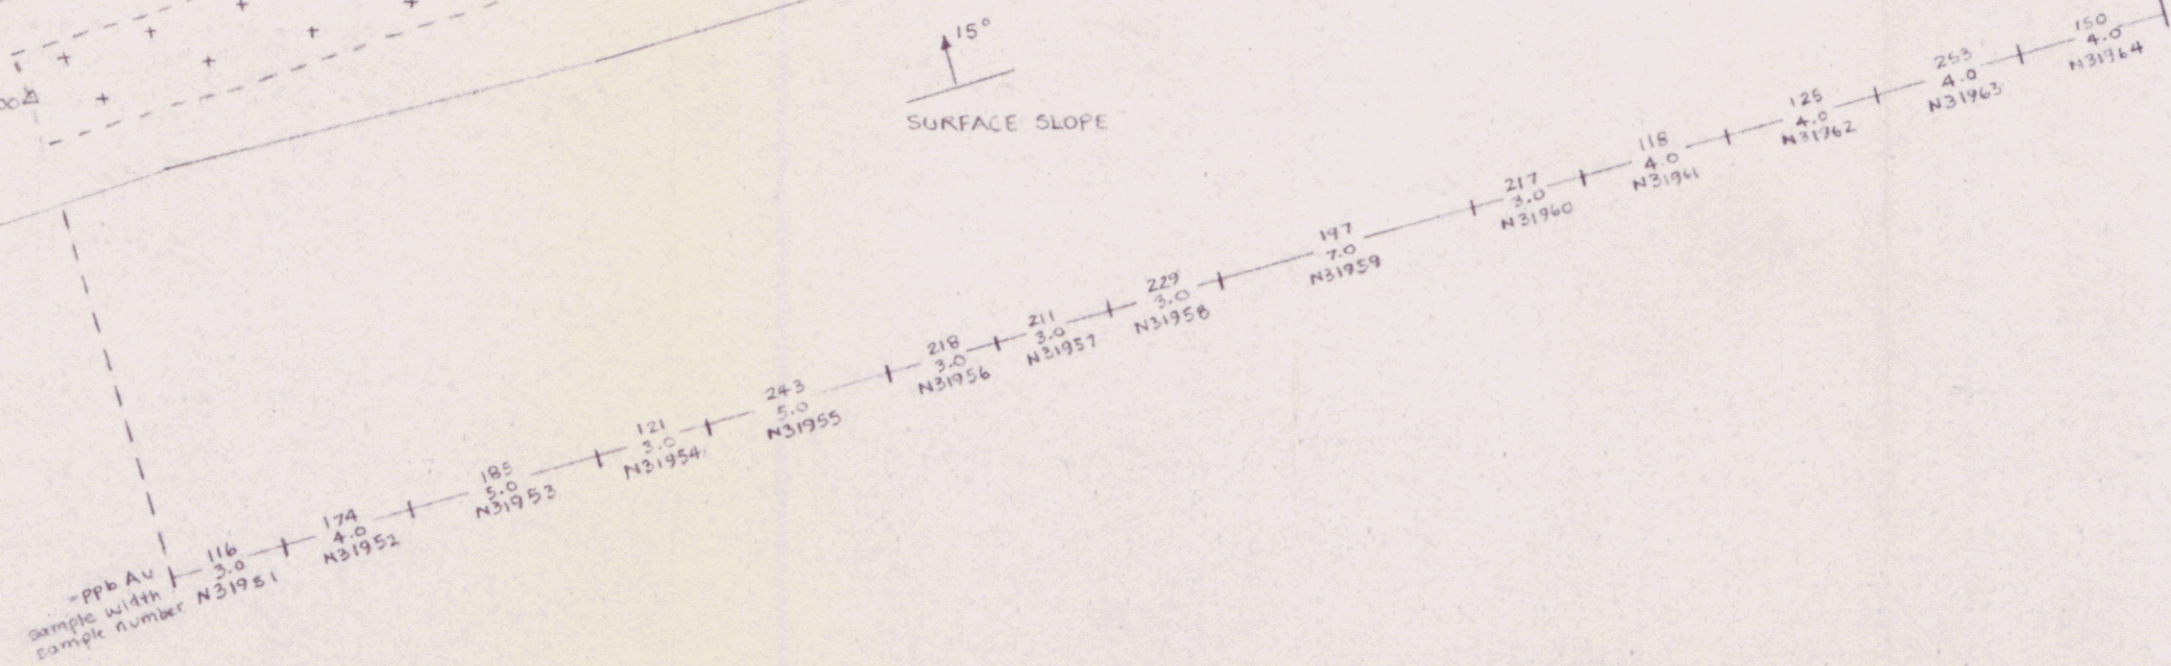 15°
SURFACE SLOPE
ppb Au
sample width
sample number
116
3.0
N31951
174
4.0
N31952
185
5.0
N31953
121
3.0
N31954
243
5.0
N31955
218
3.0
N31956
211
3.0
N31957
229
3.0
N31958
197
7.0
N31959
217
3.0
N31960
118
4.0
N31961
125
4.0
N31962
253
4.0
N31963
150
4.0
N31964